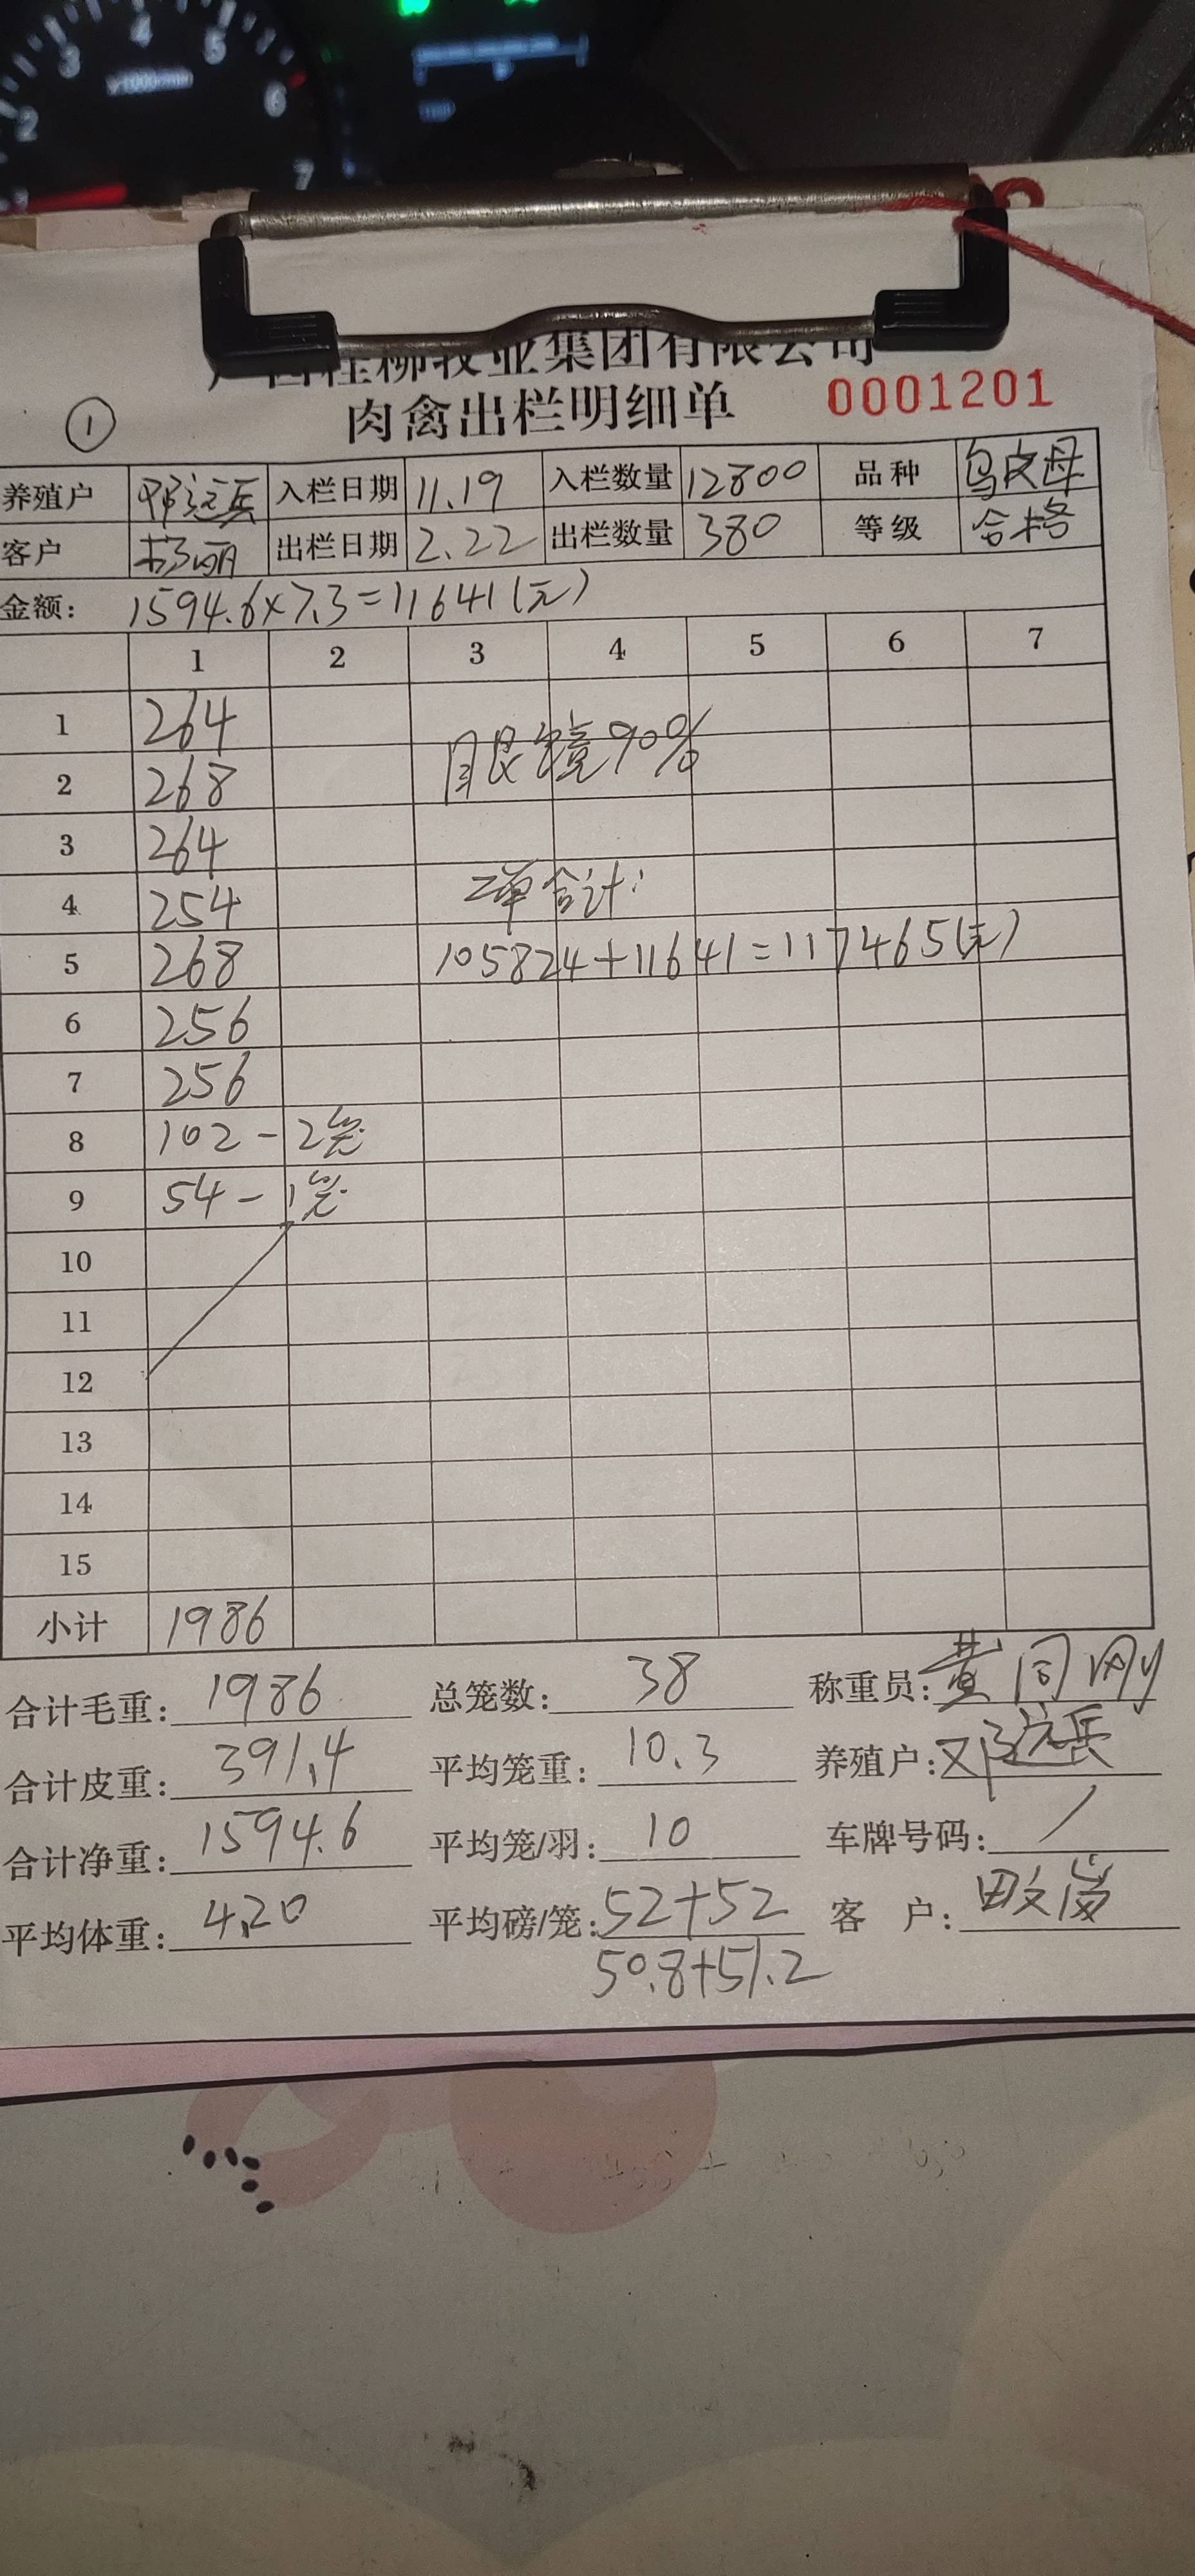 桂柳牧业集团有限公司
肉禽出栏明细单 0001201
①
养殖户 邓运兵 入栏日期 11.19 入栏数量 12800 品种 乌皮母
客户 杨丽 出栏日期 2.22 出栏数量 380 等级 合格
金额: 1594.6×7.3=11641(元)
1 2 3 4 5 6 7
1 264
眼镜90%
2 268
3 264
4 254 二单合计:
5 268 105824+11641=117465(元)
6 256
7 256
8 102-2笼
9 54-1笼
10
11
12
13
14
15
小计 1986
合计毛重: 1986 总笼数: 38 称重员: 黄同刚
合计皮重: 391.4 平均笼重: 10.3 养殖户: 邓运兵
合计净重: 1594.6 平均笼/羽: 10 车牌号码: /
平均体重: 4.20 平均磅/笼: 52+52 客 户:
50.8+51.2
4 5 6
3
2 7